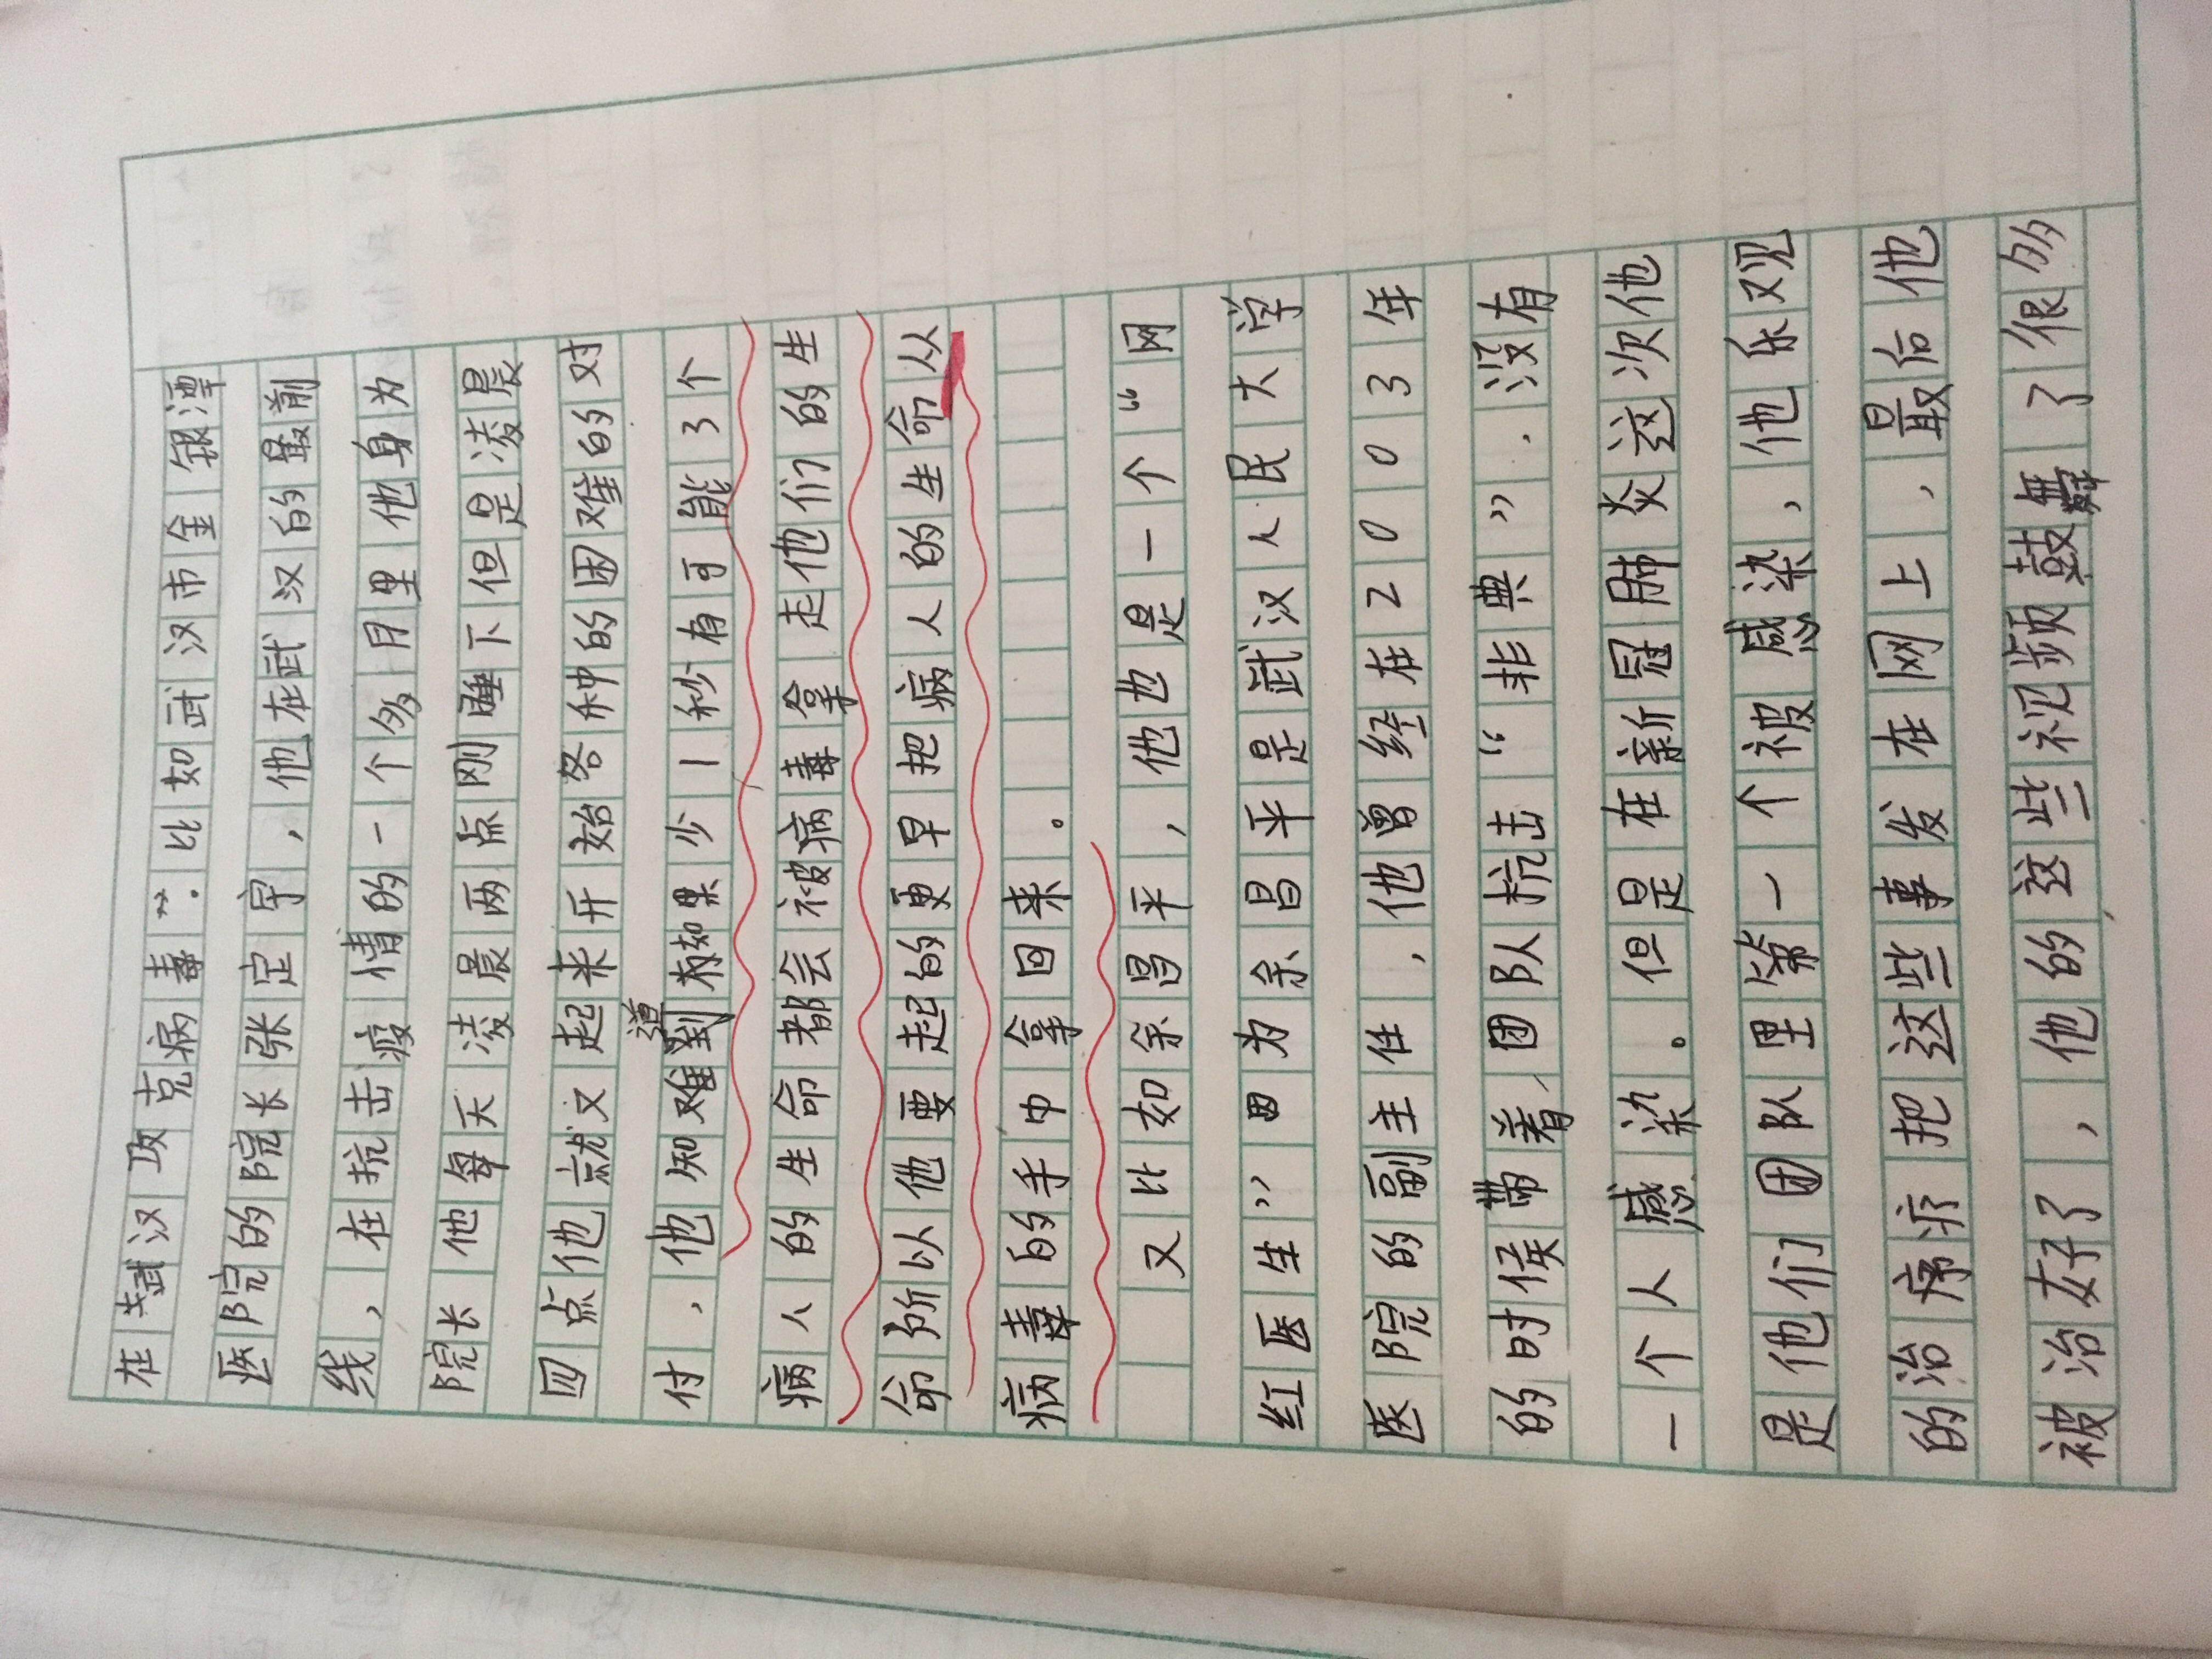 在武汉攻克病毒”.比如武汉市金银潭
医院的院长张定宇,他在武汉的最前
线,在抗击疫情的一个多月里他身为
院长他每天凌晨两点刚睡下但是凌晨
四点他就又起来开始各种的困难的对
付,他知道如果少1秒有可能3个
病人的生命都会被病毒拿走他们的生
命所以他要起的更早把病人的生命从
病毒的手中拿回来。
又比如余昌平,他也是一个“网
红医生”因为余昌平是武汉人民大学
医院的副主任,他曾经在2003年
的时侯带着团队抗击“非典”.没有
一个人感染。但是在新冠肺炎这次他
是他们团队里第一个被感染,他乐观
的治疗把这些事发在网上,最后他
被治好了,他的这些视频鼓舞了很多